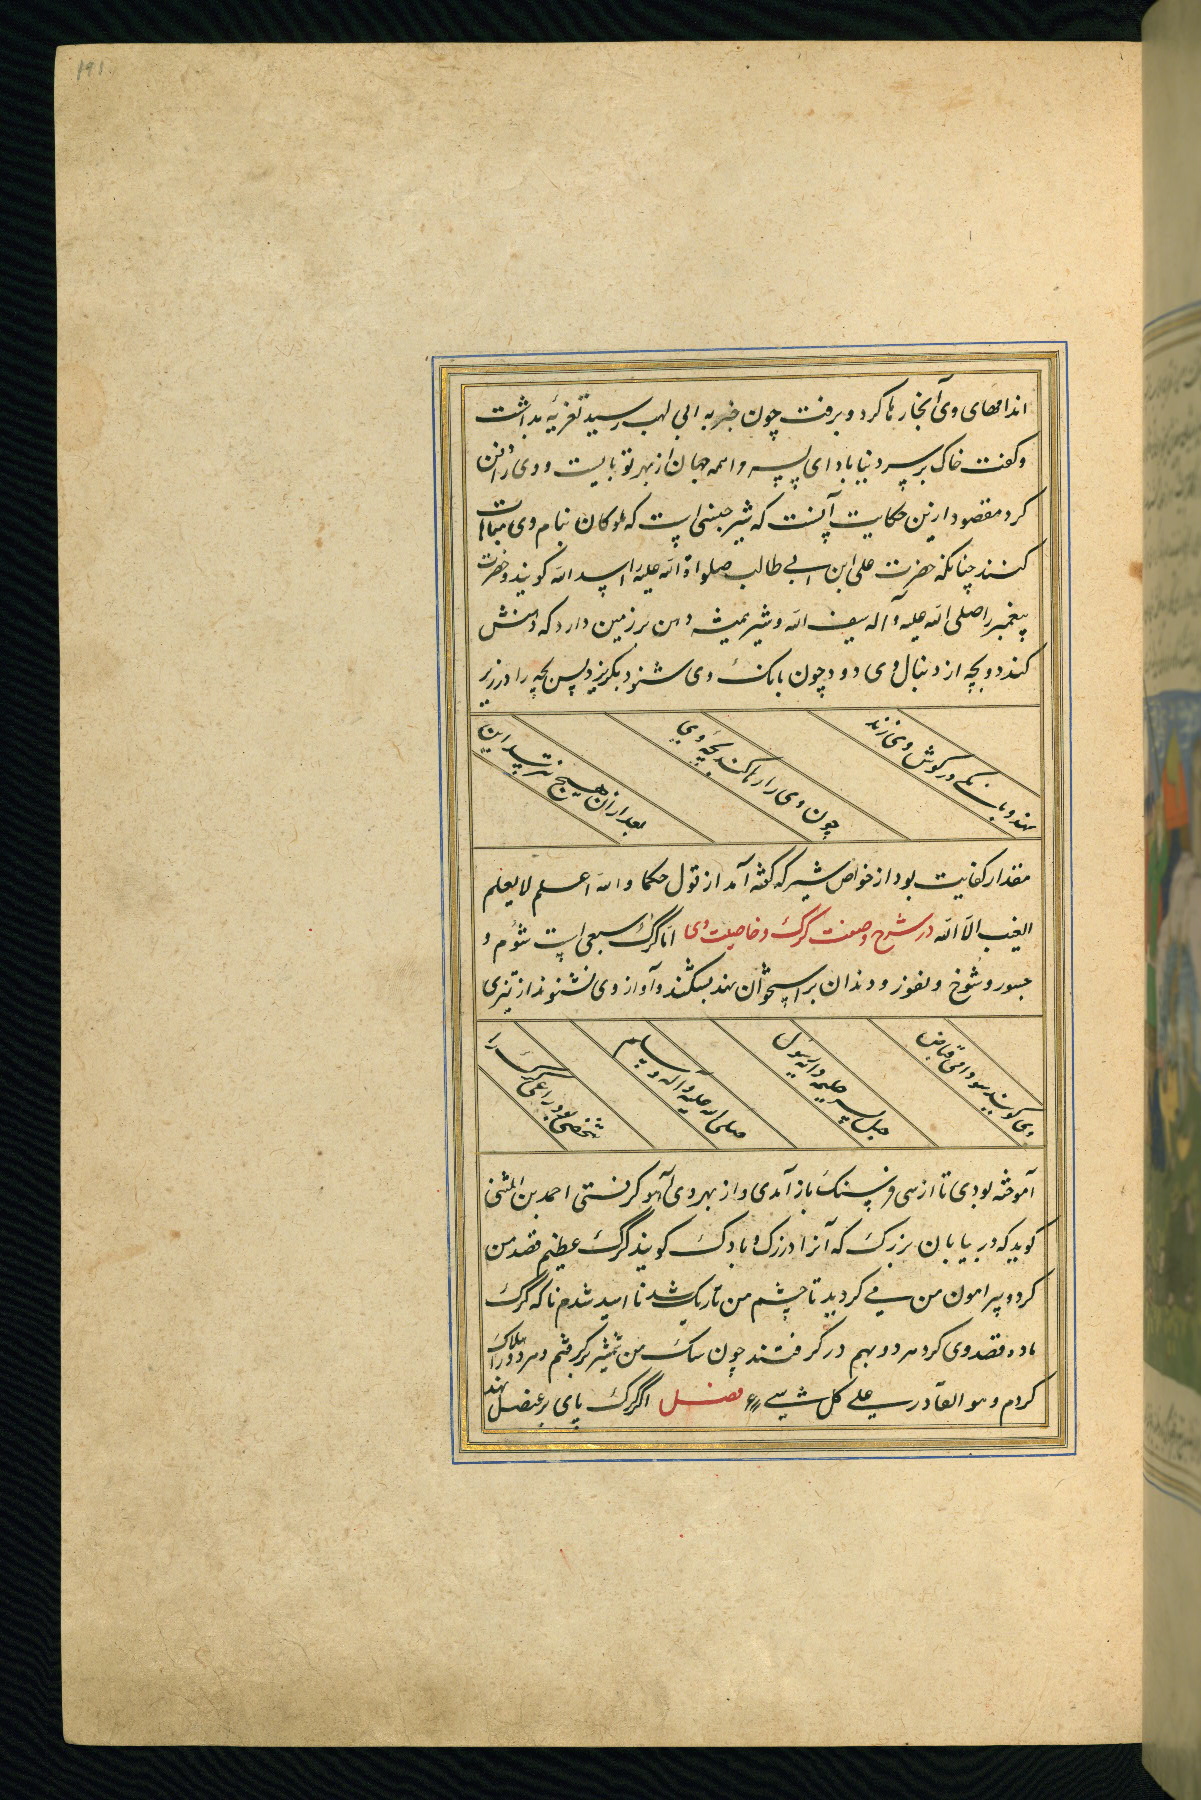 ۱۹۱
اندامهای وی آنجا رها کرد و برفت چون خبر به ابی لهب رسید تعزیهٔ بداشت
و کفت خاک بر سر دنیا باد ای پسر و همه جهان از بهر تو بایست و وی را دفن
کرد مقصود ازین حکایت آنست که شیر جنسی است که ملوکان بنام وی مباهات
کنند چنانکه حضرت علی ابن ابی طالب صلواة الله علیه را اسد الله کویند و حضرت
پیغمبر را صلی الله علیه و آله سیف الله و شیر بیشه دهن بر زمین دارد که دمش
کند و بچه از دنبال وی دود چون بانک وی شنود بکریزد پس بچه را در زیر
نهد و بانکی در کوش وی زند
چون وی را رها کند بچهٔ وی
بعد از آن هیچ نترسد این
مقدار کفایت بود از خواص شیر که کفته آمد از قول حکما و الله اعلم لا یعلم
الغیب الا الله در شرح و صفت کرک و خاصیت وی اما کرک سبعی است شؤم و
جسور و شوخ و دندان بر استخوان نهد بشکند و آواز وی نشنوند از تیزی
وی کویند سودا می
جبل پسر حلیمه دایه رسول
صلی الله علیه و آله و سلم
شخصی بود راعی کرک را
آموخته بودی تا از سی فرسنک باز آمدی و از بهر وی آهو کرفتی احمد بن المثنی
کوید که در بیابان بزرک که آنرا کویند کرک عظیم قصد من
کرد و پیرامون من می کردید تا چشم من تاریک شد نا امید شدم ناکه کرک
ماده قصد وی کرد هر دو بهم در کرفتند چون سک من شمشیر برکرفتم و هر دو را هلاک
کردم و هو القادر علی کل شیء فصل اکر کرک پای بر عنصل نهد